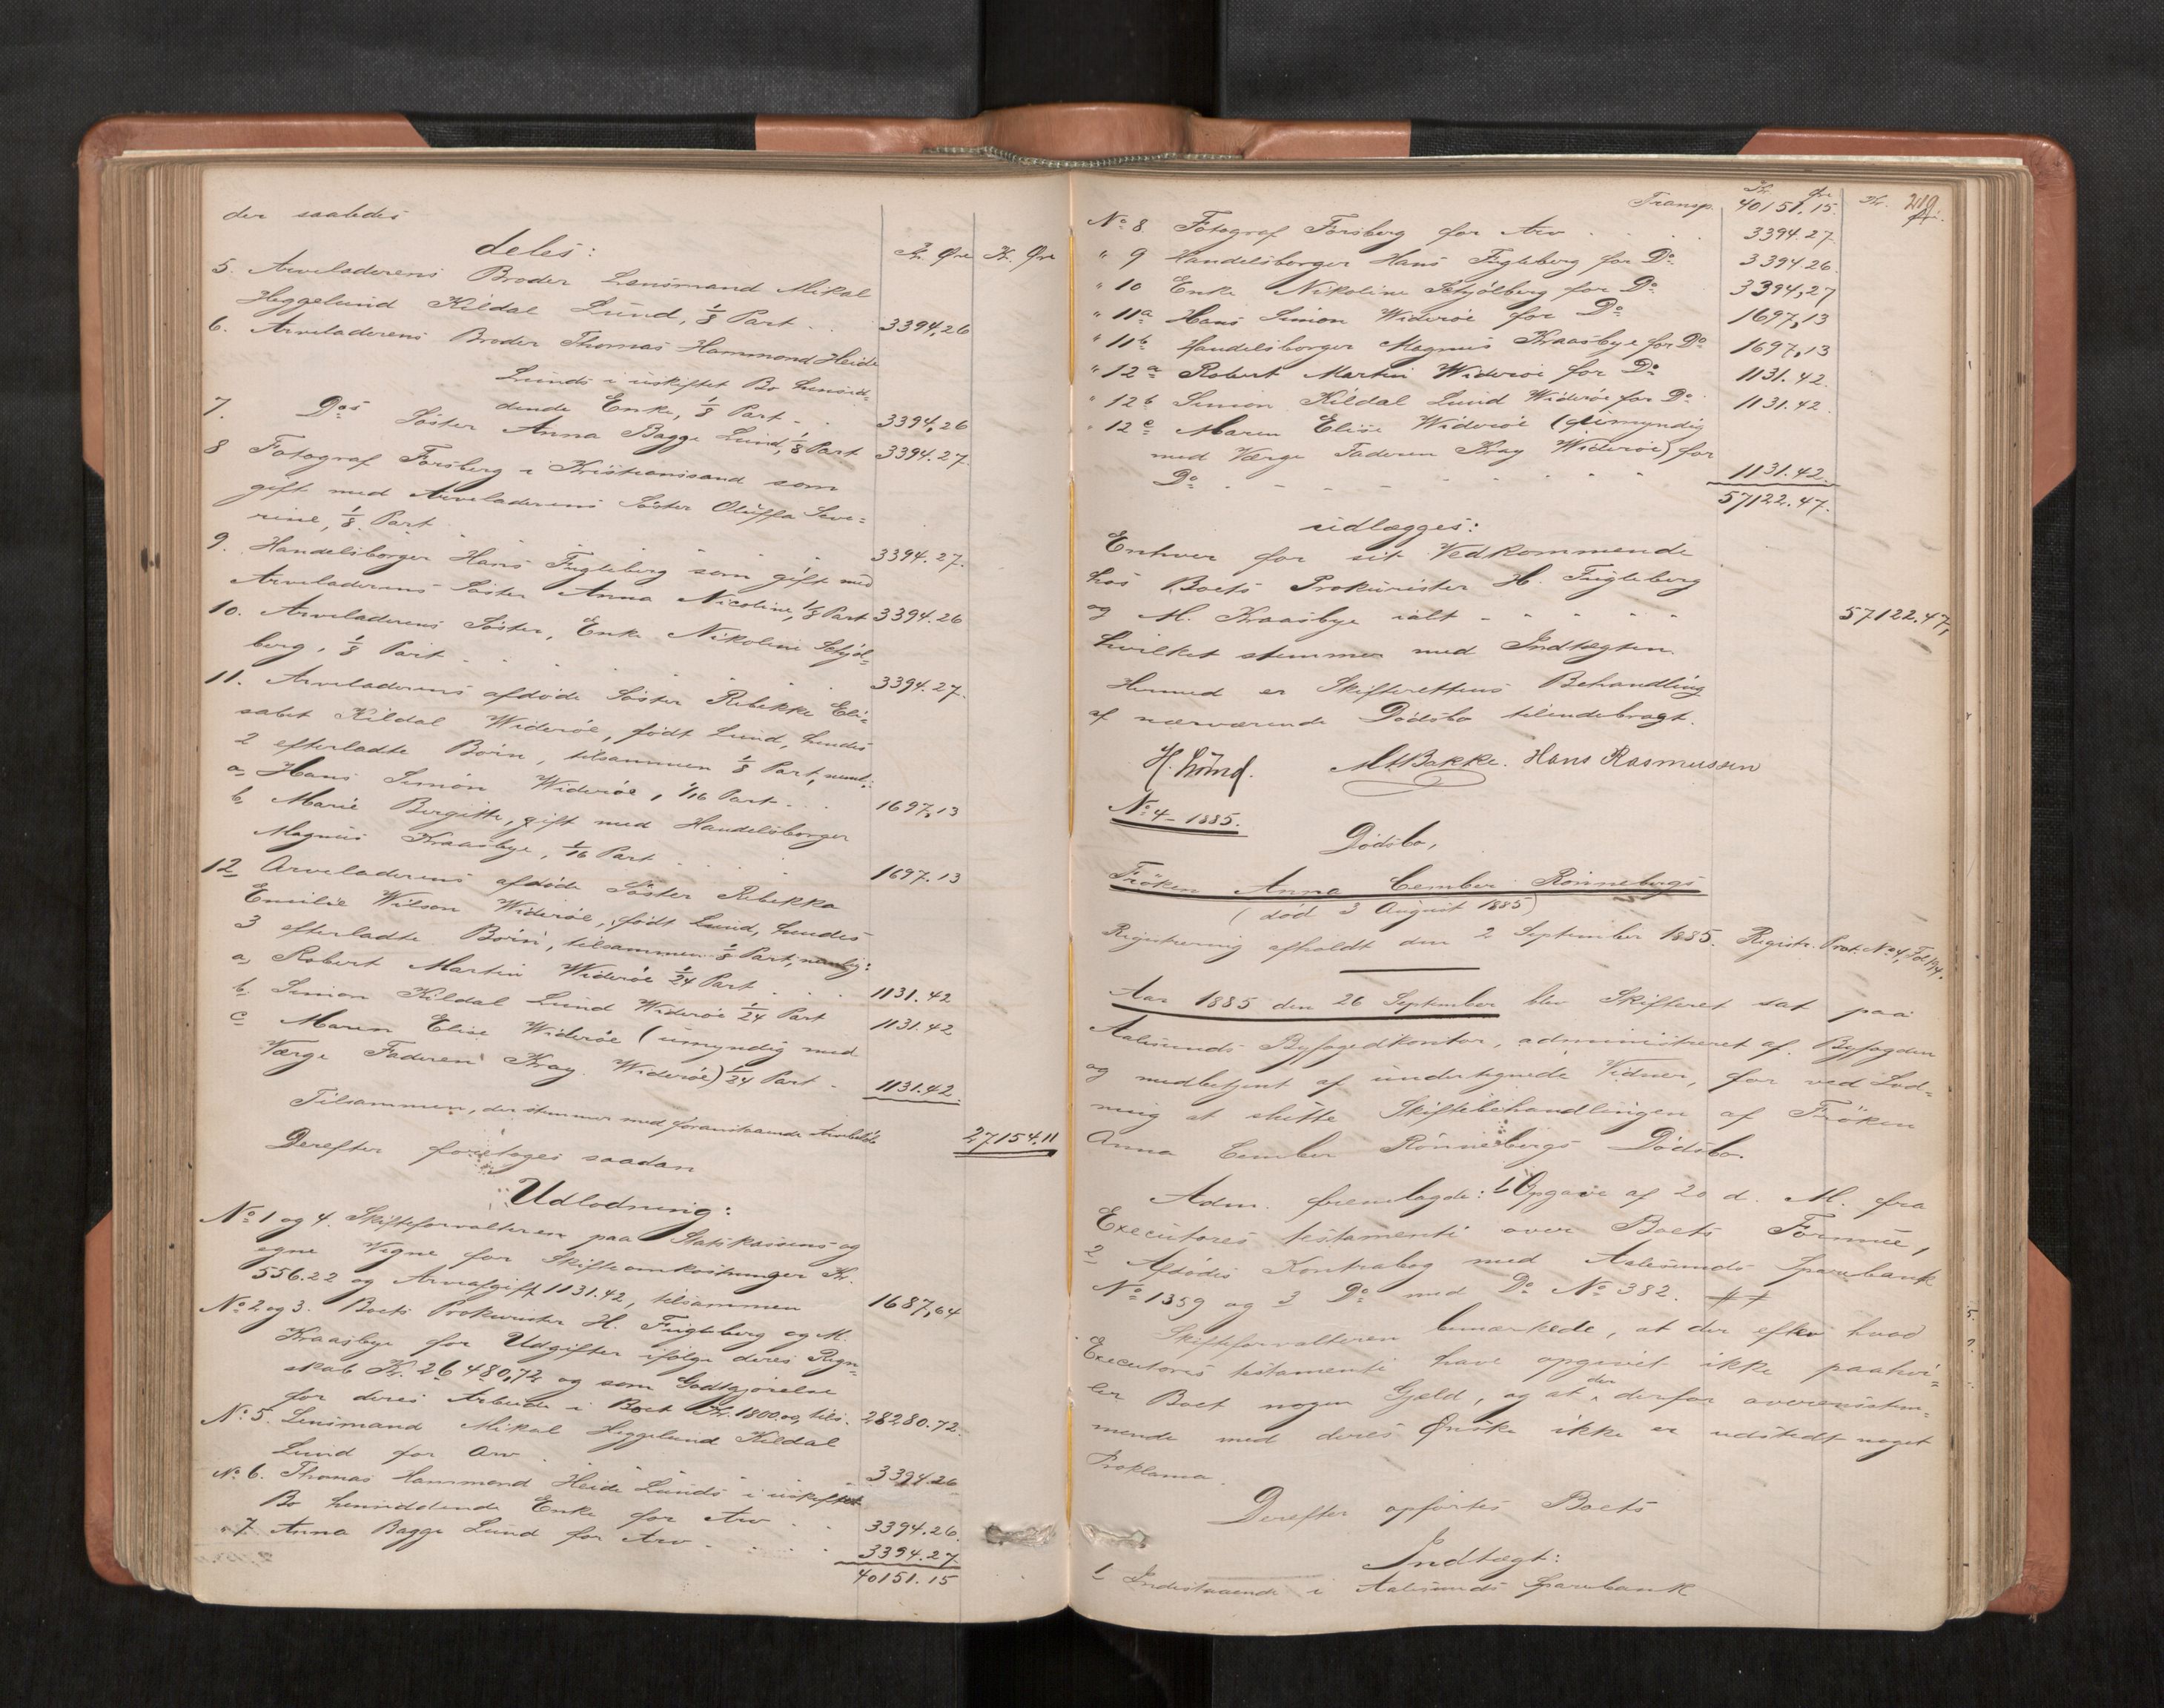 der saaledes
deles:
Kr. Øre Kr. Øre
5. Arveladerens Broder Lensmand Mikal
Heggelund Kildal Lund, 1/8 Part . . 3394,26
6. Arveladerens Broder Thomas Hammond Heide
Lunds i uskiftet Bo hensid=
dende Enke, 1/8 Part . . 3394,26
7. Dos Söster Anna Bagge Lund, 1/8 Part 3394.27.
8 Fotograf Forsberg i Kristiansand som
gift med Arveladerens Söster Oluffa Seve=
rine, 1/8 Part . . . . . 3394.27.
9. Handelsborger Hans Fugleberg som gift med
Arveladerens Söster Anna Nicoline, 1/8 Part 3394.26
10. Arveladerens Söster, Enke Nikoline Schjöl=
berg, 1/8 Part . . . . . 3394.27.
11. Arveladerens afdöde Söster Rebekke Eli=
sabet Kildal Wideröe, födt Lund, hendes
2 efterladte Börn, tilsammen 1/8 Part, neml.:
a, Hans Simon Wideröe, 1/16 Part . . . 1697,13
b, Marie Bergitte, gift med Handelsborger
Magnus Kraasbye, 1/16 Part . . . 1697.13
12, Arveladerens afdöde Söster Rebekka
Emilie Wilson Wideröe, födt Lund, hendes
3 efterladte Börn, tilsammen 1/8 Part, nemlig:
a, Robert Martin Wideröe 1/24 Part . . . 1131.42
b. Simon Kildal Lund Wideröe 1/24 Part 1131.42
c Maren Elise Wideröe (umyndig med
Værge Faderen Kray Wideröe) 1/24 Part . 1131.42.
Tilsammen, der stemmer med foranstaaende Arvebelöb 27154.11
Derefter foretoges saadan
Udlodning:
No 1 og 4. Skifteforvalteren paa Statskassens og
egne Vegne for Skifteomkostninger Kr.
556.22 og Arveafgift 1131.42, tilsammen 1687,64
No 2 og 3. Boets Prokurister H. Fugleberg og M.
Kraasbye for Udgifter ifölge deres Regn=
skab Kr. 26480,72 og som Godtgjörelse
for deres Arbeide i Boet Kr. 1800.00, tils. 28280.72.
No 5. Lensmand Mikal Heggelund Kildal
Lund for Arv . . . . 3394.26
No 6. Thomas Hammond Heide Lunds i uskiftet
Bo hensiddende Enke for Arv . . 3394.26.
" 7. Anna Bagge Lund for Arv . . . . 3394.27
40151.15
219
Kr. Øre Kr. Øre.
Transp. 40151.15.
No 8 Fotograf Forsberg for Arv . . . . 3394.27
" 9 Handelsborger Hans Fugleberg for Do 3394.26.
" 10 Enke Nikoline Schjölberg for Do 3394,27
" 11a Hans Simon Wideröe for Do 1697,13
" 11b Handelsborger Magnus Kraasbye for Do 1697,13
" 12a Robert Martin Wideröe for Do 1131.42.
" 12b Simon Kildal Lund Wideröe for Do 1131.42.
" 12c Maren Elise Wideröe (umyndig
med Værge Faderen Kray Wideröe) for
Do - - - - - - 1131.42.
57122.47.
udlægges:
Enhver for sit Vedkommende
hos Boets Prokurister H. Fugleberg
og M. Kraasbye ialt - - - - - 57122.47,
hvilket stemmer med Indtægten.
Hermed er Skifterettens Behandling
af nærværende Dödsbo tilendebragt.
M Bakke. Hans Rasmussen
No 4 - 1885.
Dödsbo,
Fröken Anna Cember Rönnebergs
(död 3 August 1885)
Registrering afholdt den 2 September 1885. Registr. Prot. No 4, Fol 194.
Aar 1885 den 26 September blev Skifteret sat paa
Aalesunds Byfogedkontor, administreret af Byfogden
og medbetjent af undertegnede Vidner, for ved Lod=
ning at slutte Skiftebehandlingen af Fröken
Anna Cember Rönnebergs Dödsbo.
Adm. fremlagde: 1 Opgave af 20 d. M. fra
Executores testamenti over Boets Formue,
2 Afdödes Kontrabog med Aalesunds Sparebank
No 1359 og 3 Do med Do No 382.
Skifteforvalteren bemærkede, at der efter hvad
Executores testamenti have opgivet ikke paahvi=
ler Boet nogen Gjeld, og at der derfor overensstem=
mende med deres Önske ikke er udstedt noget
Proklama.
Derefter opförtes Boets
Indtægt:
1 Indestaaende i Aalesunds Sparebank